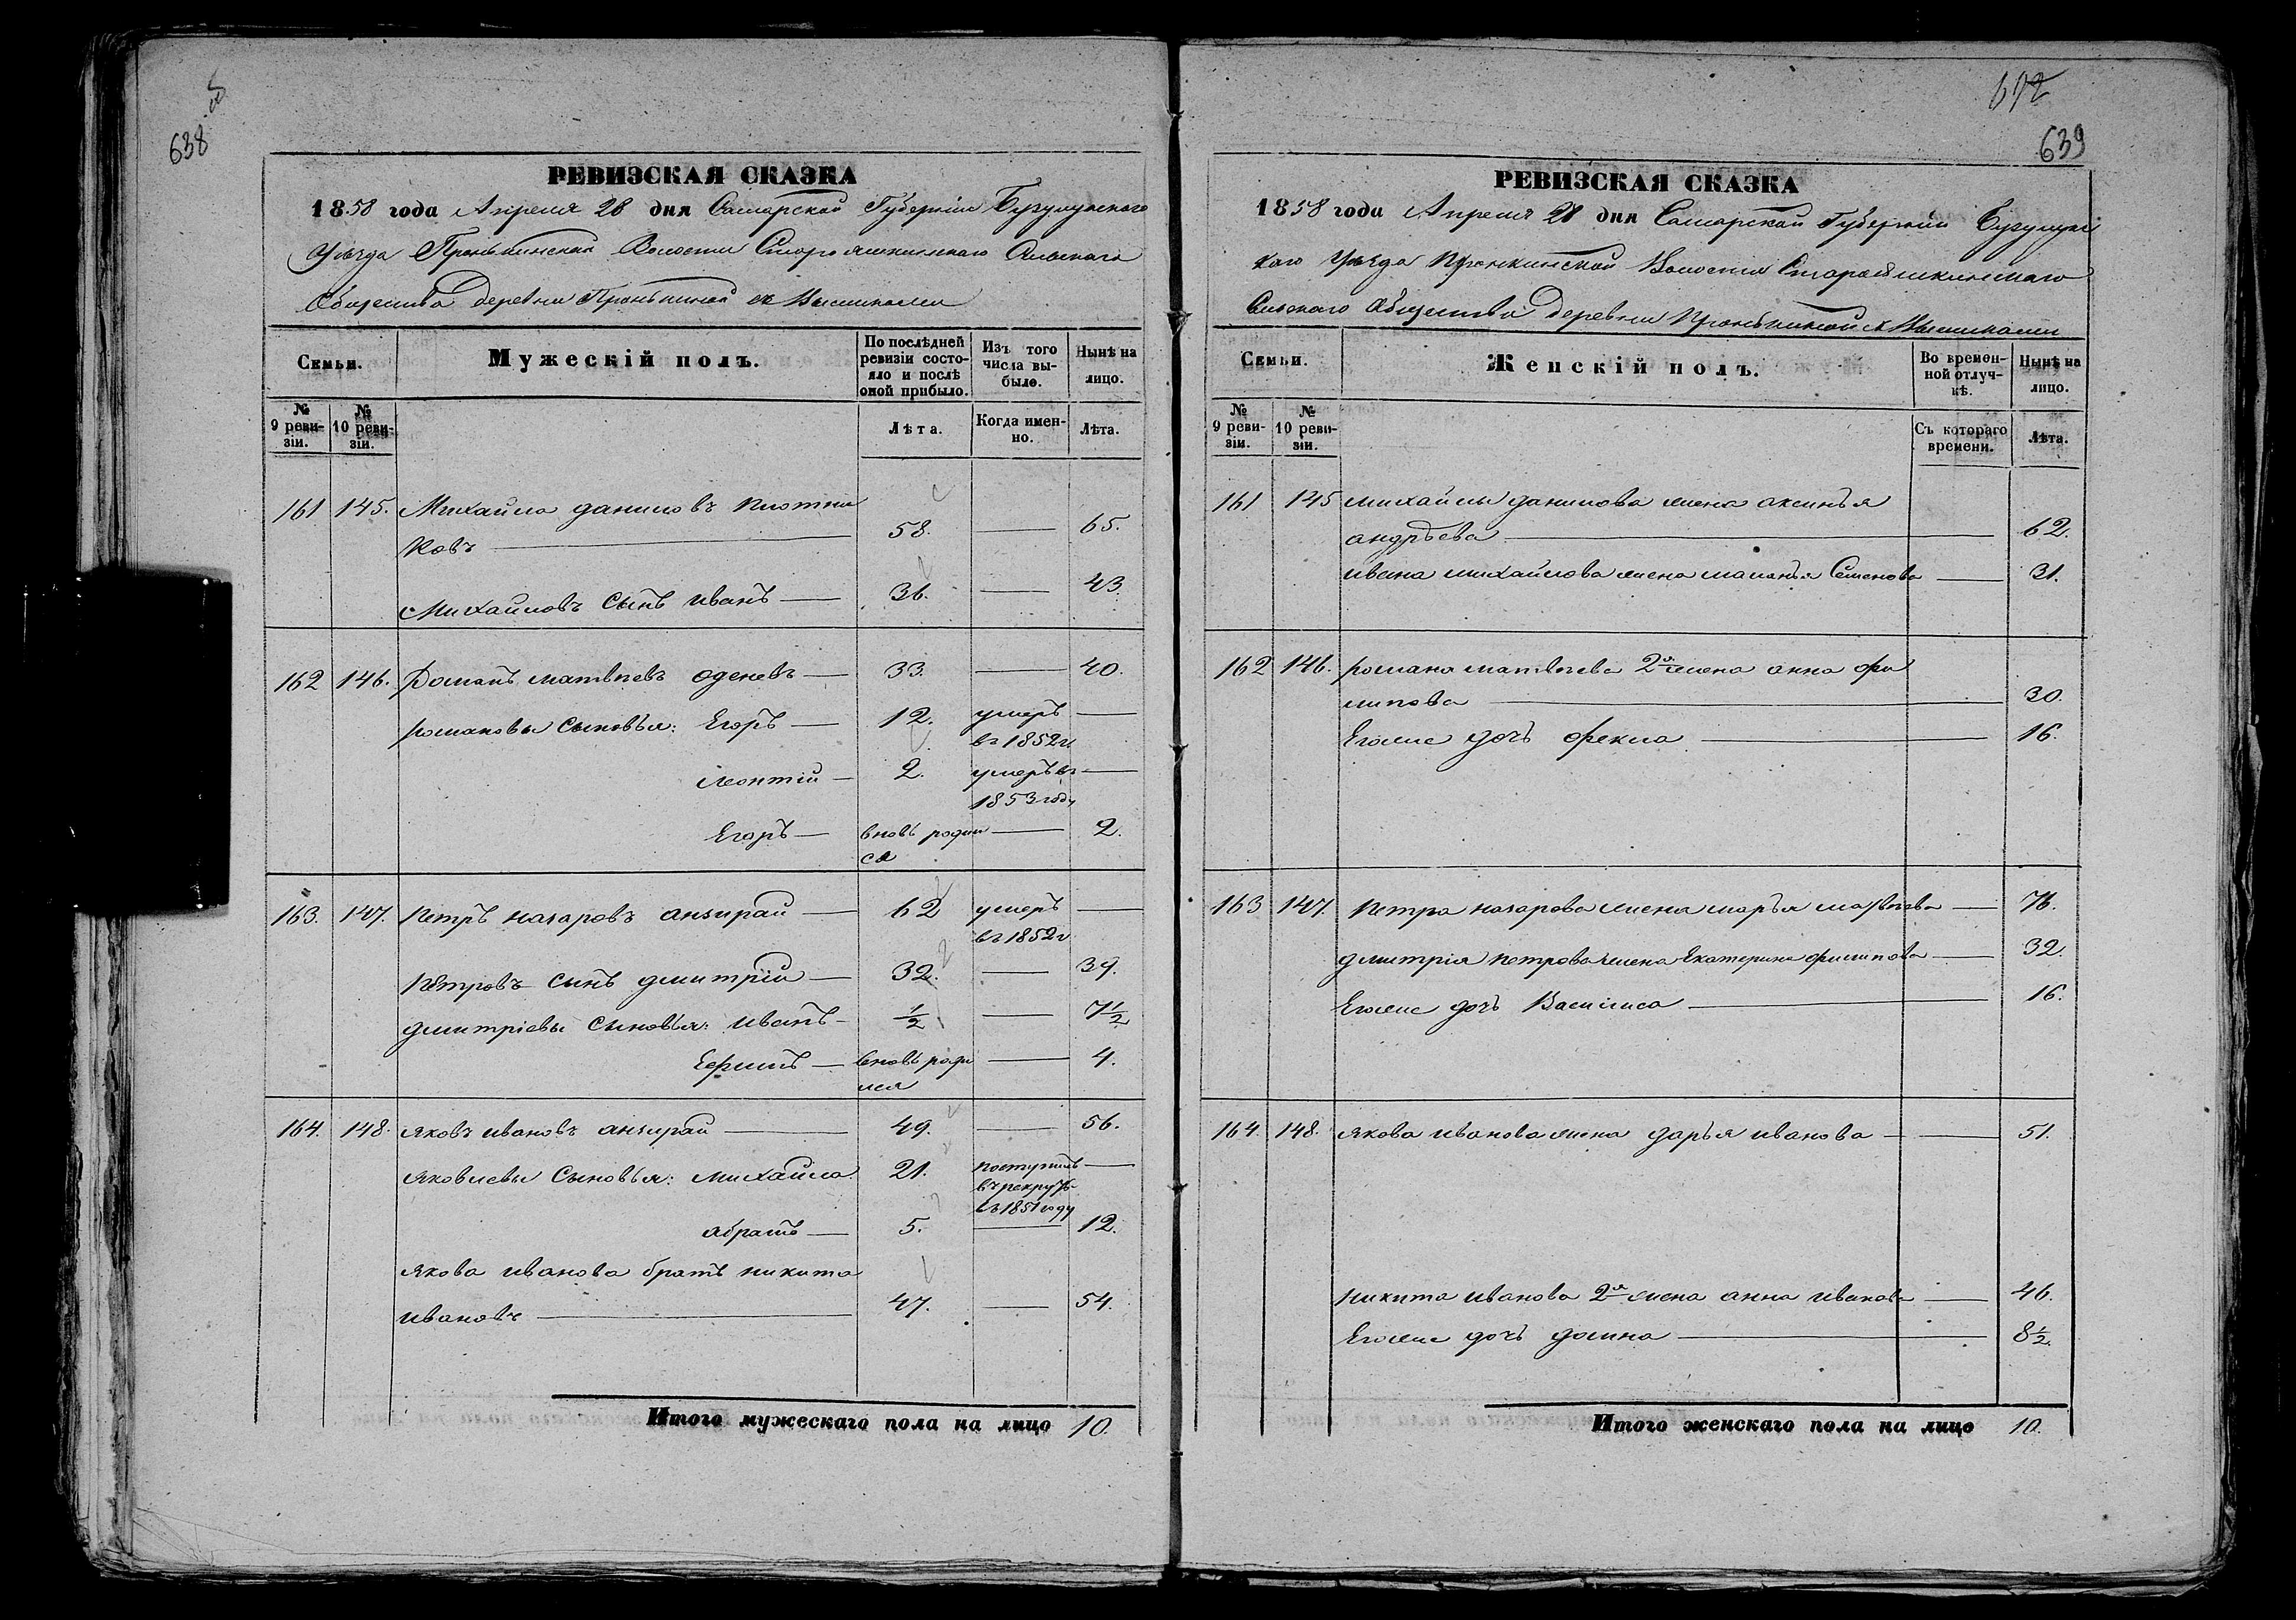 638
РЕВИЗСКАЯ СКАЗКА
1858 года Апреля 28 дня Самарской Губерніи Бугульмскаго
Уѣзда Пронькинской Волости
Общества деревни Пронькиной
Семьи.
Мужескій полъ.
По послѣдней ревизіи состояло и послѣ оной прибыло.
Изъ того числа выбыло.
Нынѣ на лицо.
№ 9 ревизіи.
№ 10 ревизіи.
Лѣта.
Когда именно.
Лѣта.
161 145. Михайла даниловъ плотни
ковъ — 58. — 65.
Михайловъ сынъ иванъ — 36. — 43.
162 146. Романъ матвѣевъ оденевъ — 33. — 40.
романовы сыновья: Егоръ — 12. умеръ —
въ 1852 г
леонтий — 2. умеръ въ —
1853 году
Егоръ — вновь родил — 2.
ся
163. 147. Петръ назаровъ — 62 умеръ —
въ 1852 г
Петровъ сынъ дмитрій — 32. — 39.
дмитріевы сыновья: иванъ — ½ — 7½
Ефимъ — вновь роди — 4.
лся
164. 148. яковъ ивановъ — 49. — 56.
яковлевы сыновья: михайла 21. поступилъ —
въ рекруты
въ 1851 году
абрамъ — 5. — 12.
якова иванова братъ никита
ивановъ — 47. — 54.
Итого мужескаго пола на лицо 10.
639
РЕВИЗСКАЯ СКАЗКА
1858 года Апреля 28 дня Самарской Губерніи
каго Уѣзда Пронкинской Волости
Сельскаго Общества деревни Пронькиной
Семьи.
Женскій полъ.
Во временной отлучкѣ.
Нынѣ на лицо.
№ 9 ревизіи.
№ 10 ревизіи.
Съ котораго времени.
Лѣта.
161 145 михайлы данилова жена аксинья
андрѣева — 62.
ивана михайлова жена маланья Семенова — 31.
162 146. романа матвѣева 2я жена анна фи
липова — 30.
Егоже дочь фекла — 16.
163 147. Петра назарова жена марья матвѣева — 76.
дмитрія петрова жена Екатерина филипова — 32.
Егоже дочь Василиса — 16.
164. 148. якова иванова жена дарья иванова — 51.
никита иванова 2я жена анна иванова — 46.
Егоже дочь домна — 8½.
Итого женскаго пола на лицо 10.